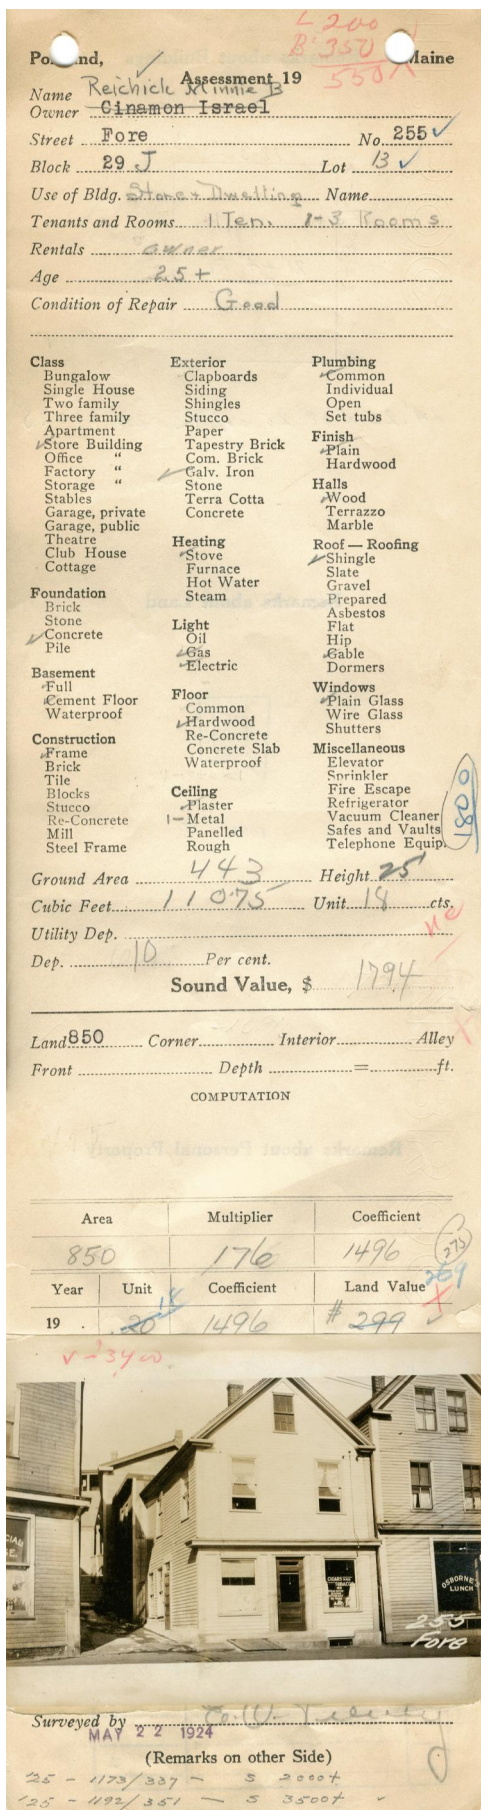 L 200
B 350
550
Portland, Maine
Assessment 19
Name Reichick Minnie B
Owner Cinamon Israel
Street Fore No. 255
Block 29 J Lot 13
Use of Bldg. Store + Dwelling Name
Tenants and Rooms 1 Ten. 1-3 Rooms
Rentals owner
Age 25+
Condition of Repair Good
Class
Bungalow
Single House
Two family
Three family
Apartment
Store Building
Office "
Factory "
Storage "
Stables
Garage, private
Garage, public
Theatre
Club House
Cottage
Foundation
Brick
Stone
Concrete
Pile
Basement
Full
Cement Floor
Waterproof
Construction
Frame
Brick
Tile
Blocks
Stucco
Re-Concrete
Mill
Steel Frame
Exterior
Clapboards
Siding
Shingles
Stucco
Paper
Tapestry Brick
Com. Brick
Galv. Iron
Stone
Terra Cotta
Concrete
Heating
Stove
Furnace
Hot Water
Steam
Light
Oil
Gas
Electric
Floor
Common
Hardwood
Re-Concrete
Concrete Slab
Waterproof
Ceiling
Plaster
1- Metal
Panelled
Rough
Plumbing
Common
Individual
Open
Set tubs
Finish
Plain
Hardwood
Halls
Wood
Terrazzo
Marble
Roof — Roofing
Shingle
Slate
Gravel
Prepared
Asbestos
Flat
Hip
Gable
Dormers
Windows
Plain Glass
Wire Glass
Shutters
Miscellaneous
Elevator
Sprinkler
Fire Escape
Refrigerator
Vacuum Cleaner
Safes and Vaults
Telephone Equip.
1800
Ground Area 443 Height 25
Cubic Feet 11075 Unit 18 cts.
Utility Dep.
Dep. 10 Per cent.
Sound Value, $ 1794
Land 850 Corner Interior Alley
Front Depth = ft.
COMPUTATION
Area Multiplier Coefficient
850 176 1496 275
Year Unit Coefficient Land Value 269
19 20 18 1496 # 299
3400
CIGARS AND
TOBACCO
OSBORNE'S
LUNCH
255
Fore
Surveyed by
MAY 22 1924
(Remarks on other Side)
'25 - 1173/337 - S 2000+
'25 - 1192/351 - S 3500+